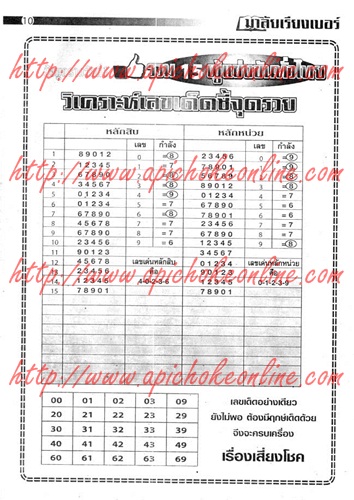 10
มาลัยเรียงเบอร์
วิเคราะห์เลขเด็ดชี้จุดรวย
หลักสิบ หลักหน่วย
เลข กำลัง เลข กำลัง
1 89012 0 =8 23456 0 =9
2 12345 1 =7 78901 1 =9
3 67890 56789
4 34567 3 =8 89012 3 =8
5 01234 4 =7 67890 5 =6
6 =7 78901 6 =6
7 67890 6 =8 01234 7 =7
8 67890 8 =7 67890 8 =7
10 23456 9 =6 12345 9 =8
11 90123 34567
12 45678 เลขเด่นหลักสิบ 01234 เลขเด่นหลักหน่วย
23456 คือ 90123 คือ
14 12345 4-0-2-3-6 12345 0-1-2-3-9
15 78901 78901
http://www.apichokeonline.com
http://www.apichokeonline.com
http://www.apichokeonline.com
http://www.apichokeonline.com
00 01 02 03 09
20 21 22 23 29
30 31 32 33 39
40 41 42 43 49
60 61 62 63 69
เลขเด็ดอย่างเดียว
ยังไม่พอ ต้องมีฤกษ์เด็ดด้วย
จึงจะครบเครื่อง
เรื่องเสี่ยงโชค